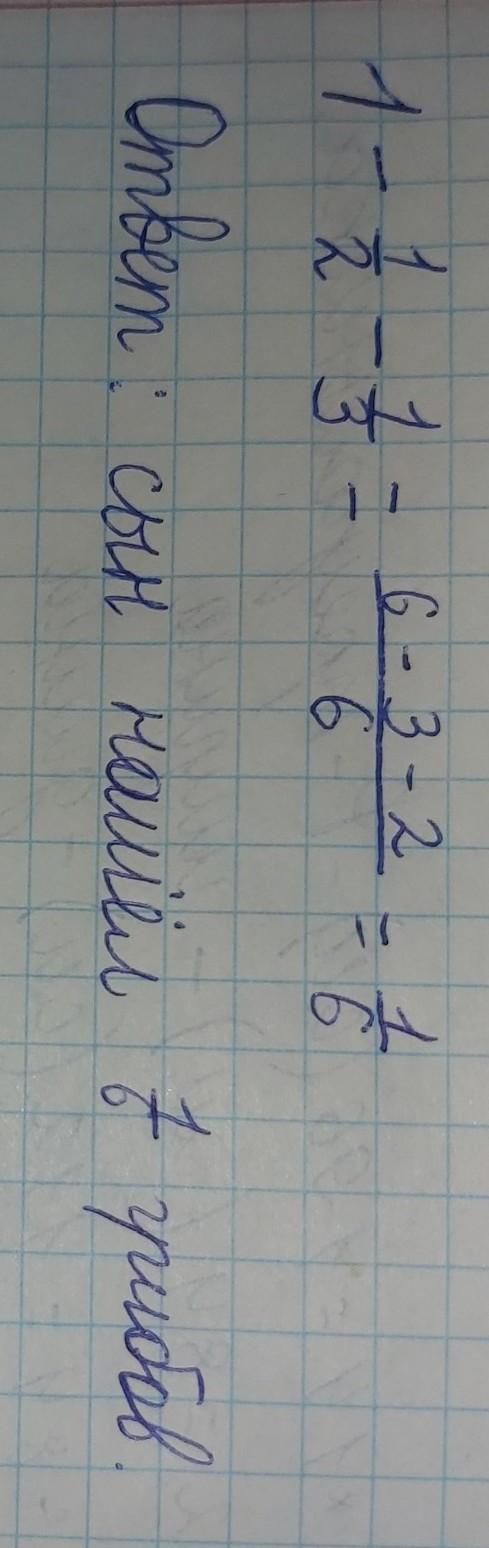 1 - 1/2 - 1/3 = (6 - 3 - 2)/6 = 1/6
Ответ: сын нашёл 1/6 грибов.